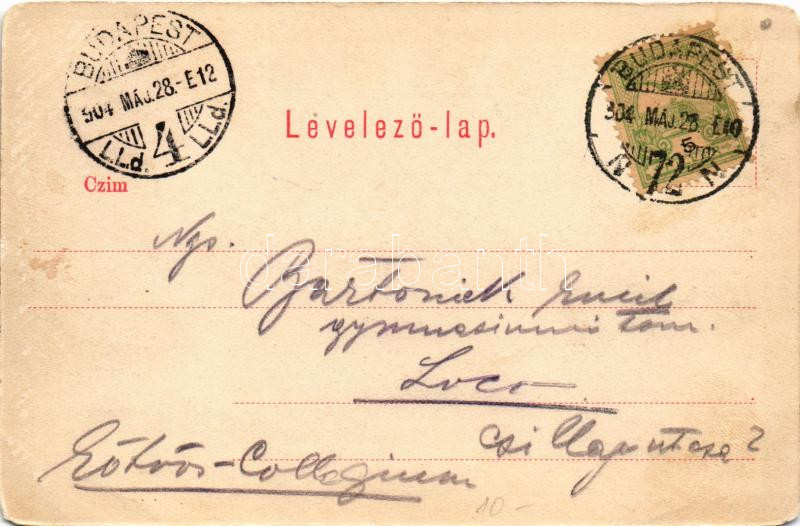 BUDAPEST
904 MÁJ. 28.-E12
4
Levelező-lap.
BUDAPEST
904 MÁJ. 28. E10
72
N N
Czim
Ngs.
Bartoniek Emil
gymnasiumi tan.
Loco
Csillag utcza 2
Eötvös-Collegium
10 -
darabanth